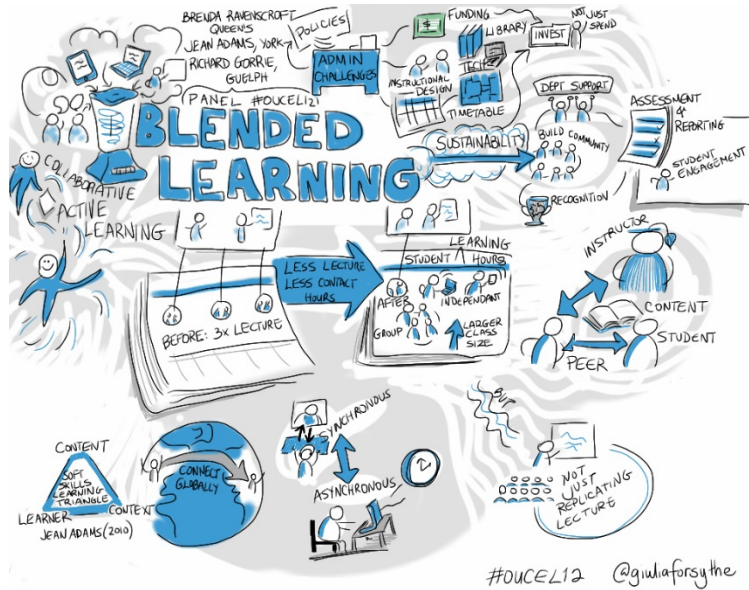 BRENDA RAVENSCROFT
QUEEN'S
JEAN ADAMS, YORK
RICHARD GORRIE,
GUELPH
PANEL #OUCEL12)
POLICIES
ADMIN
CHALLENGES
FUNDING
$
LIBRARY
TECH
INSTRUCTIONAL
DESIGN
TIMETABLE
INVEST
NOT JUST
SPEND
BLENDED
LEARNING
SUSTAINABILITY
DEPT SUPPORT
BUILD COMMUNITY
RECOGNITION
ASSESSMENT
&
REPORTING
STUDENT
ENGAGEMENT
COLLABORATIVE
ACTIVE
LEARNING
BEFORE: 3X LECTURE
LESS LECTURE
LESS CONTACT
HOURS
LEARNING
STUDENT HOURS
AFTER
INDEPENDANT
GROUP
LARGER
CLASS
SIZE
INSTRUCTOR
CONTENT
STUDENT
PEER
CONTENT
SOFT
SKILLS
LEARNING
TRIANGLE
LEARNER
CONTEXT
JEAN ADAMS (2010)
CONNECT
GLOBALLY
SYNCHRONOUS
ASYNCHRONOUS
BUT
NOT
JUST
REPLICATING
LECTURE
#OUCEL12 @giuliaforsythe